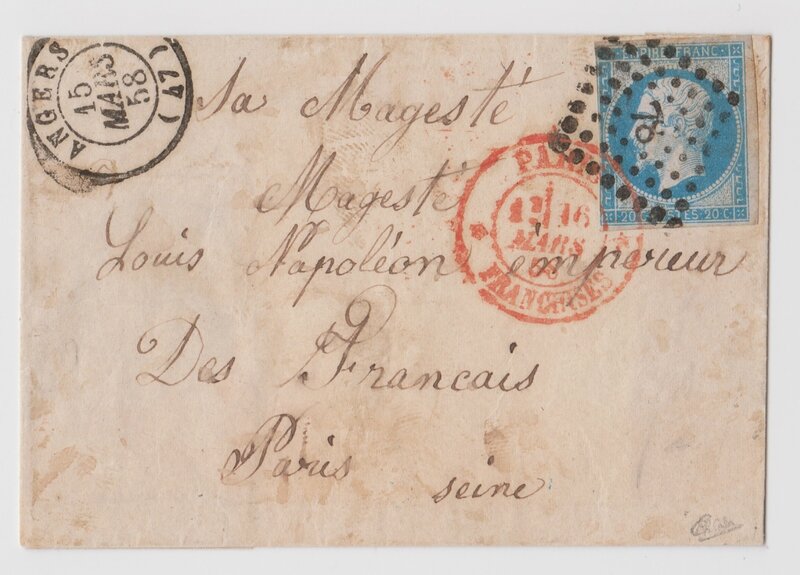 ANGERS
15
MARS
58
(47)
EMPIRE FRANC
20 C. POSTES 20 C.
78
PARIS
16
MARS
FRANCHISES
Sa Magesté
Magesté
Louis Napoléon émpereur
Des Francais
Paris seine